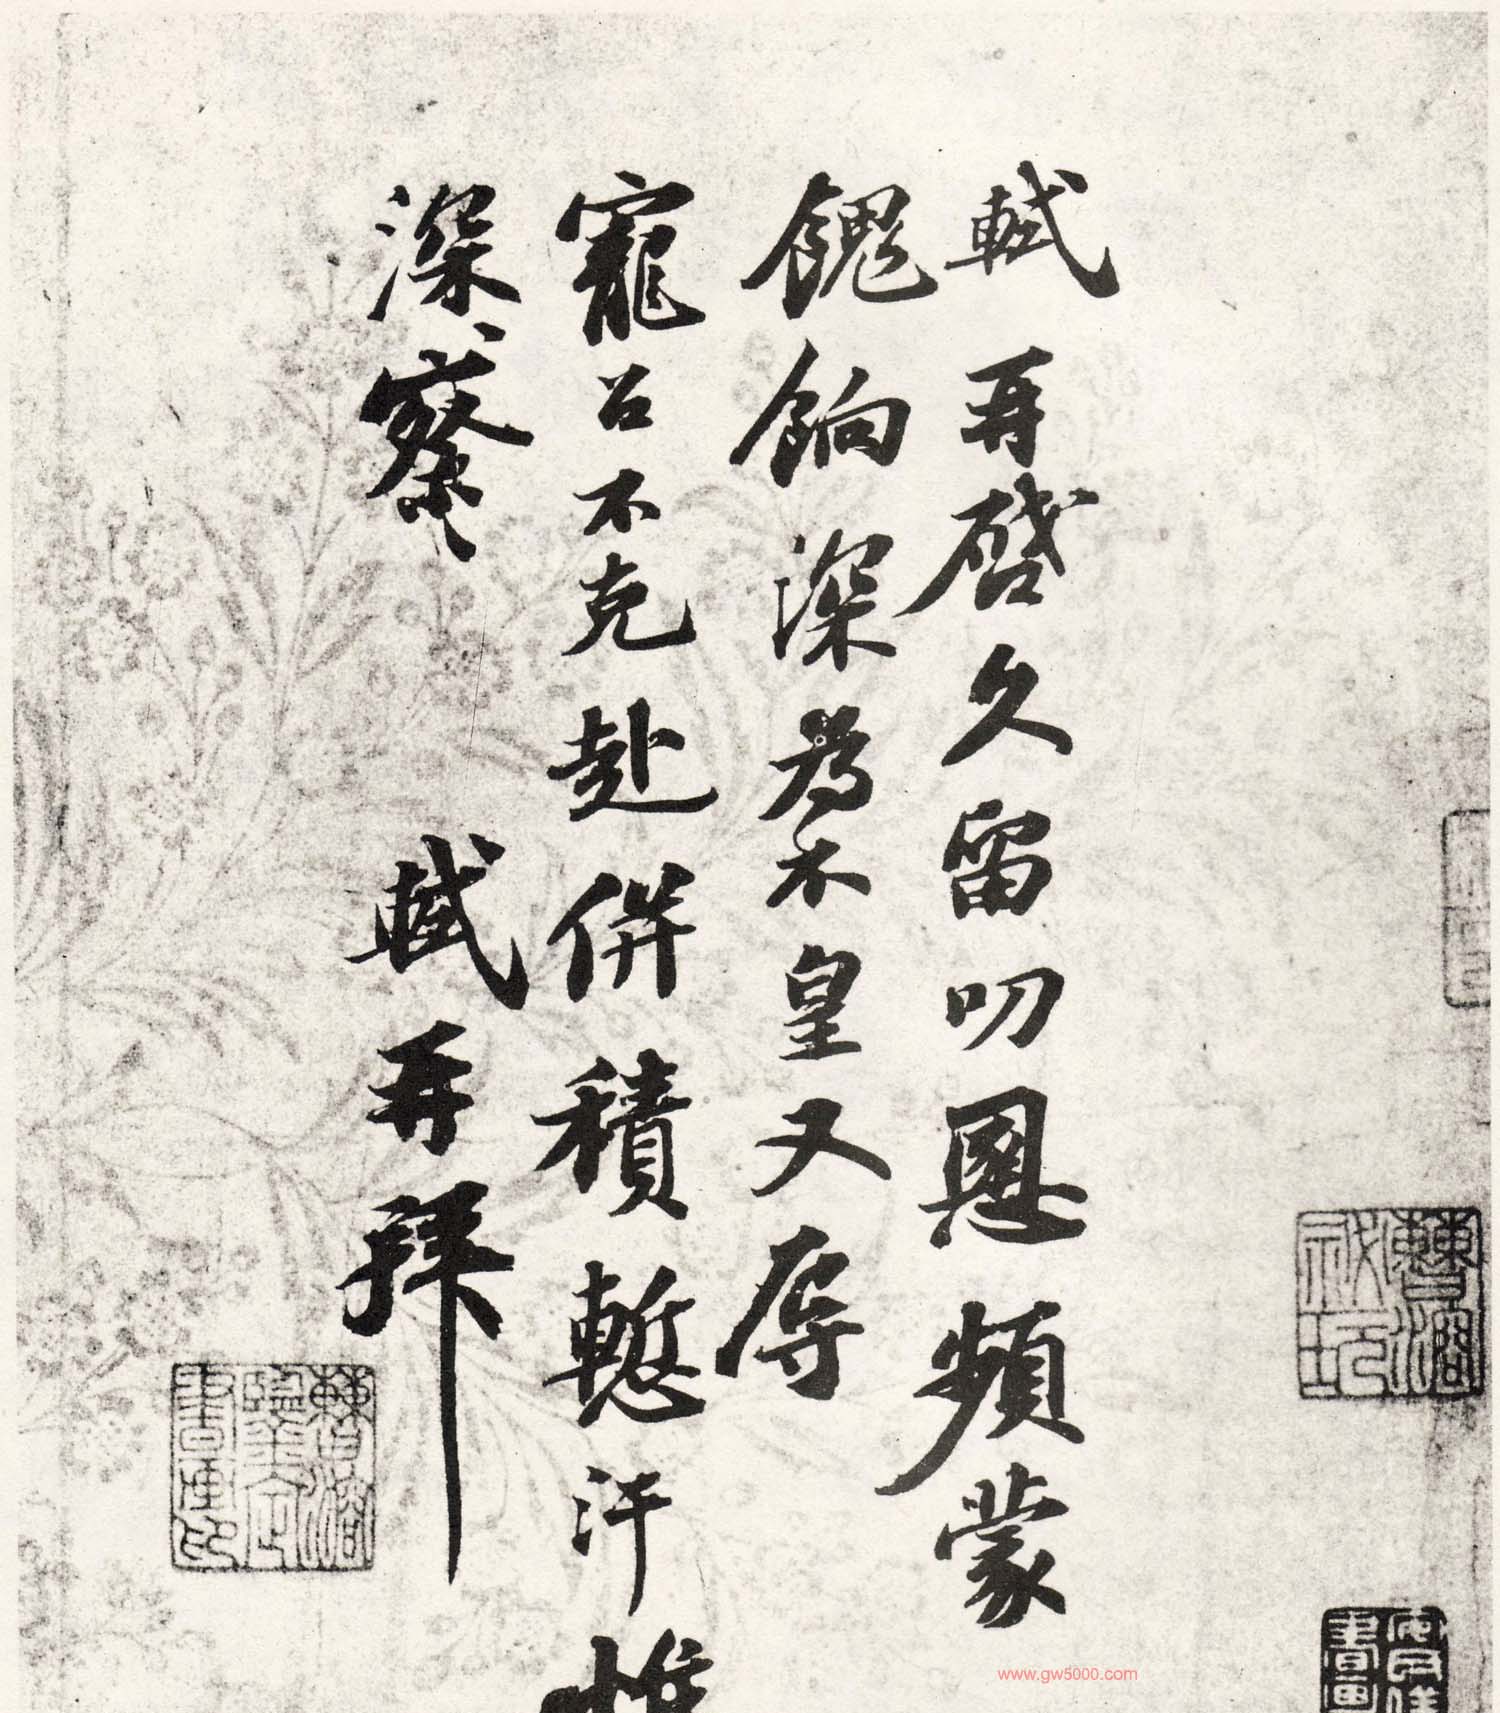 軾再啓久留叨恩頻蒙
餽餉深爲不皇又辱
寵召不克赴併積慙汗惟
深察
軾再拜
www.gw5000.com